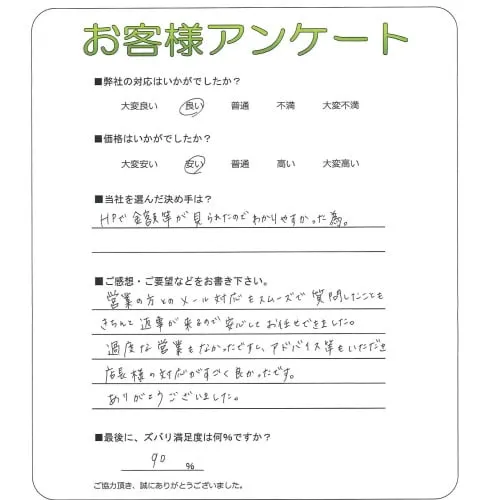 お客様アンケート
■弊社の対応はいかがでしたか?
大変良い 良い 普通 不満 大変不満
■価格はいかがでしたか?
大変安い 安い 普通 高い 大変高い
■当社を選んだ決め手は?
HPで金額等が見られたのでわかりやすかった為。
■ご感想・ご要望などをお書き下さい。
営業の方とのメール対応もスムーズで質問したことも
きちんと返事が来るので安心してお任せできました。
過度な営業もなかったですし、アドバイス等もいただき
店長様の対応がすごく良かったです。
ありがとうございました。
■最後に、ズバリ満足度は何%ですか?
90 %
ご協力頂き、誠にありがとうございました。